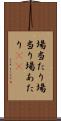 場当たり場
当り場あた
り